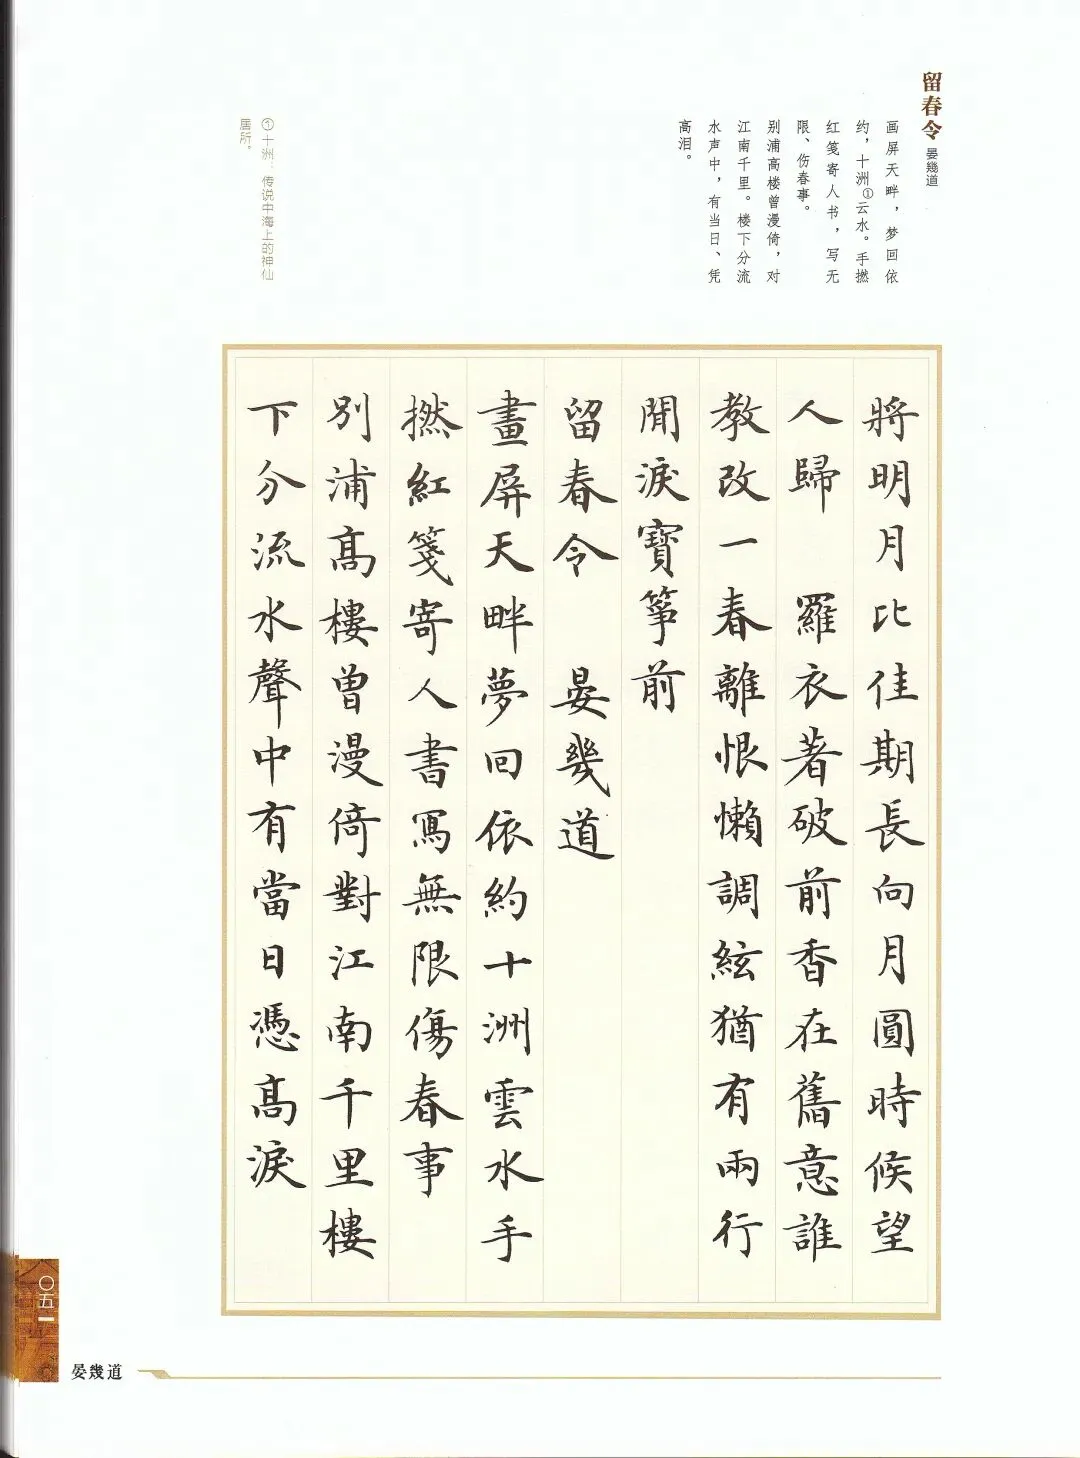 留春令 晏幾道
画屏天畔，梦回依
约，十洲①云水。手撚
红笺寄人书，写无
限、伤春事。
别浦高楼曾漫倚，对
江南千里。楼下分流
水声中，有当日、凭
高泪。
①十洲：传说中海上的神仙
居所。
將明月比佳期長向月圓時候望
人歸 羅衣著破前香在舊意誰
教改一春離恨懶調絃猶有兩行
閒淚寶箏前
留春令 晏幾道
畫屏天畔夢回依約十洲雲水手
撚紅箋寄人書寫無限傷春事
別浦高樓曾漫倚對江南千里樓
下分流水聲中有當日憑高淚
〇五一
晏幾道